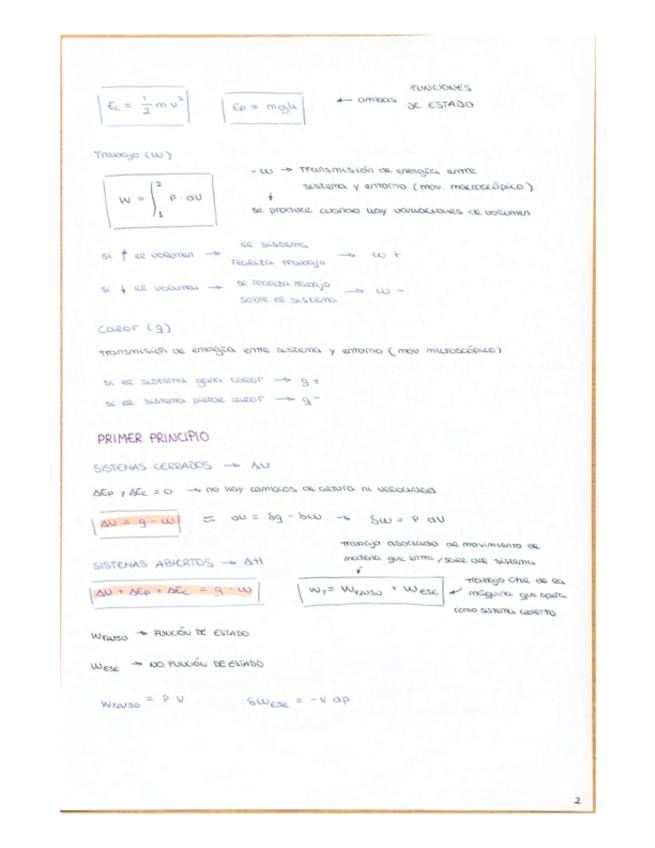 Ec = 1/2 m v²   Ep = mgh   ← ambas FUNCIONES DE ESTADO
Trabajo (W)
W = ∫₁² P · dV
· W → transmisión de energía entre
sistema y entorno (mov. macroscópico)
↓
se produce cuando hay variaciones de volumen
si ↑ el volumen → el sistema realiza trabajo → W +
si ↓ el volumen → se realiza trabajo sobre el sistema → W -
Calor (q)
transmisión de energía entre sistema y entorno (mov. microscópico)
si el sistema gana calor → q +
si el sistema pierde calor → q -
PRIMER PRINCIPIO
SISTEMAS CERRADOS → ΔU
ΔEp y ΔEc = 0 → no hay cambios de altura ni velocidad
ΔU = q - W = dU = δq - δW → δW = P dV
trabajo asociado al movimiento de
materia que entra / sale del sistema
SISTEMAS ABIERTOS → ΔH
ΔU + ΔEp + ΔEc = q - W
W_T = W_FLUJO + W_ESE
← trabajo útil de la
máquina que opera
como sistema abierto
W_FLUJO → FUNCIÓN DE ESTADO
W_ESE → NO FUNCIÓN DE ESTADO
W_FLUJO = P · V   δW_ESE = - V dp
2